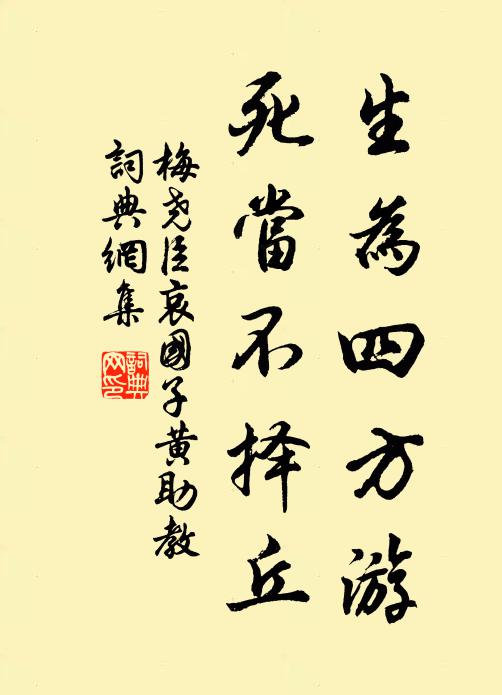 生為四方游
死當不择丘
梅尧臣哀國子黄助教
詞典網集
詞典
网印